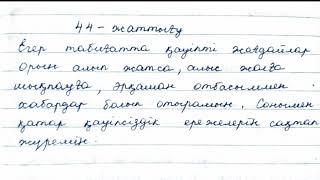 44 - жаттығу
Егер табиғатта қауіпті жағдайлар
орын алып жатса, алыс жолға
шықпауға, әрқашан отбасыммен
хабардар болып отырамын. Сонымен
қатар қауіпсіздік ережелерін сақтап
жүремін.